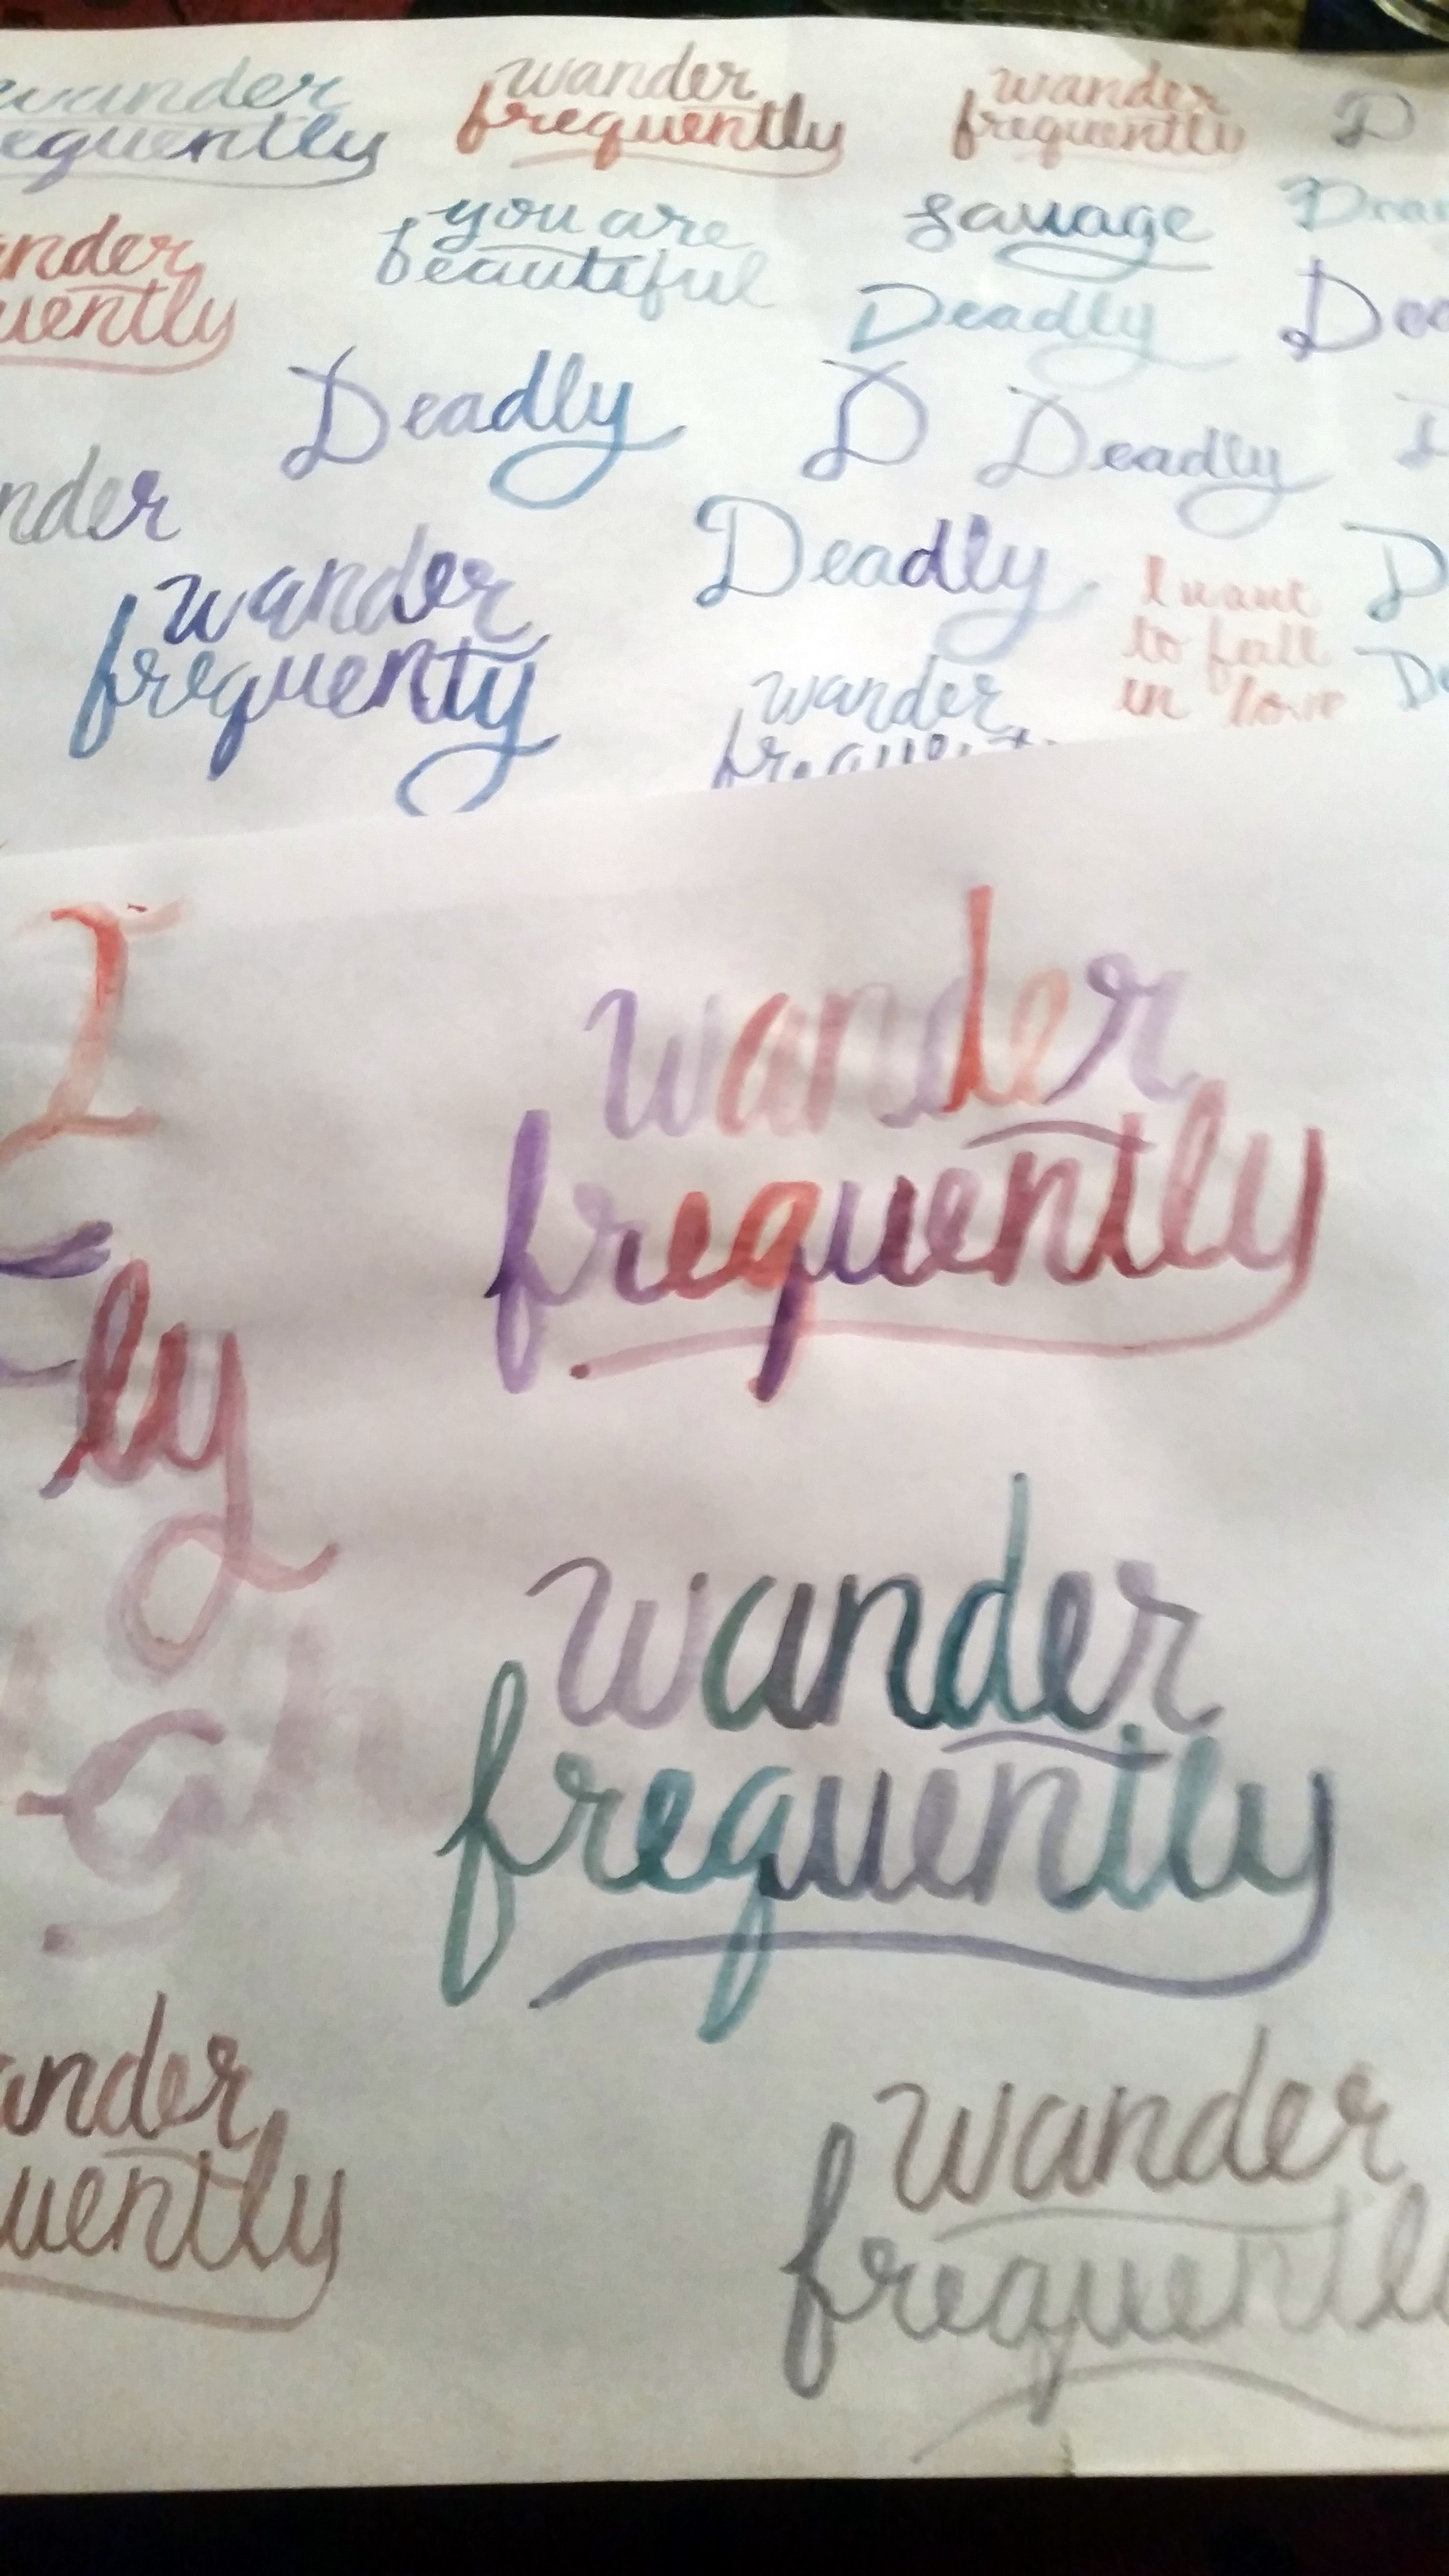 wander
equently
wander
frequently
wander
frequently
D
ander
uently
you are
beautiful
savage
Deadly
Deadly
D
Deadly
nder
wander
frequenty
Deadly
I want
to fall
in love
D
wander
I
wander
frequently
ly
wander
frequently
ander
uently
wander
frequentl